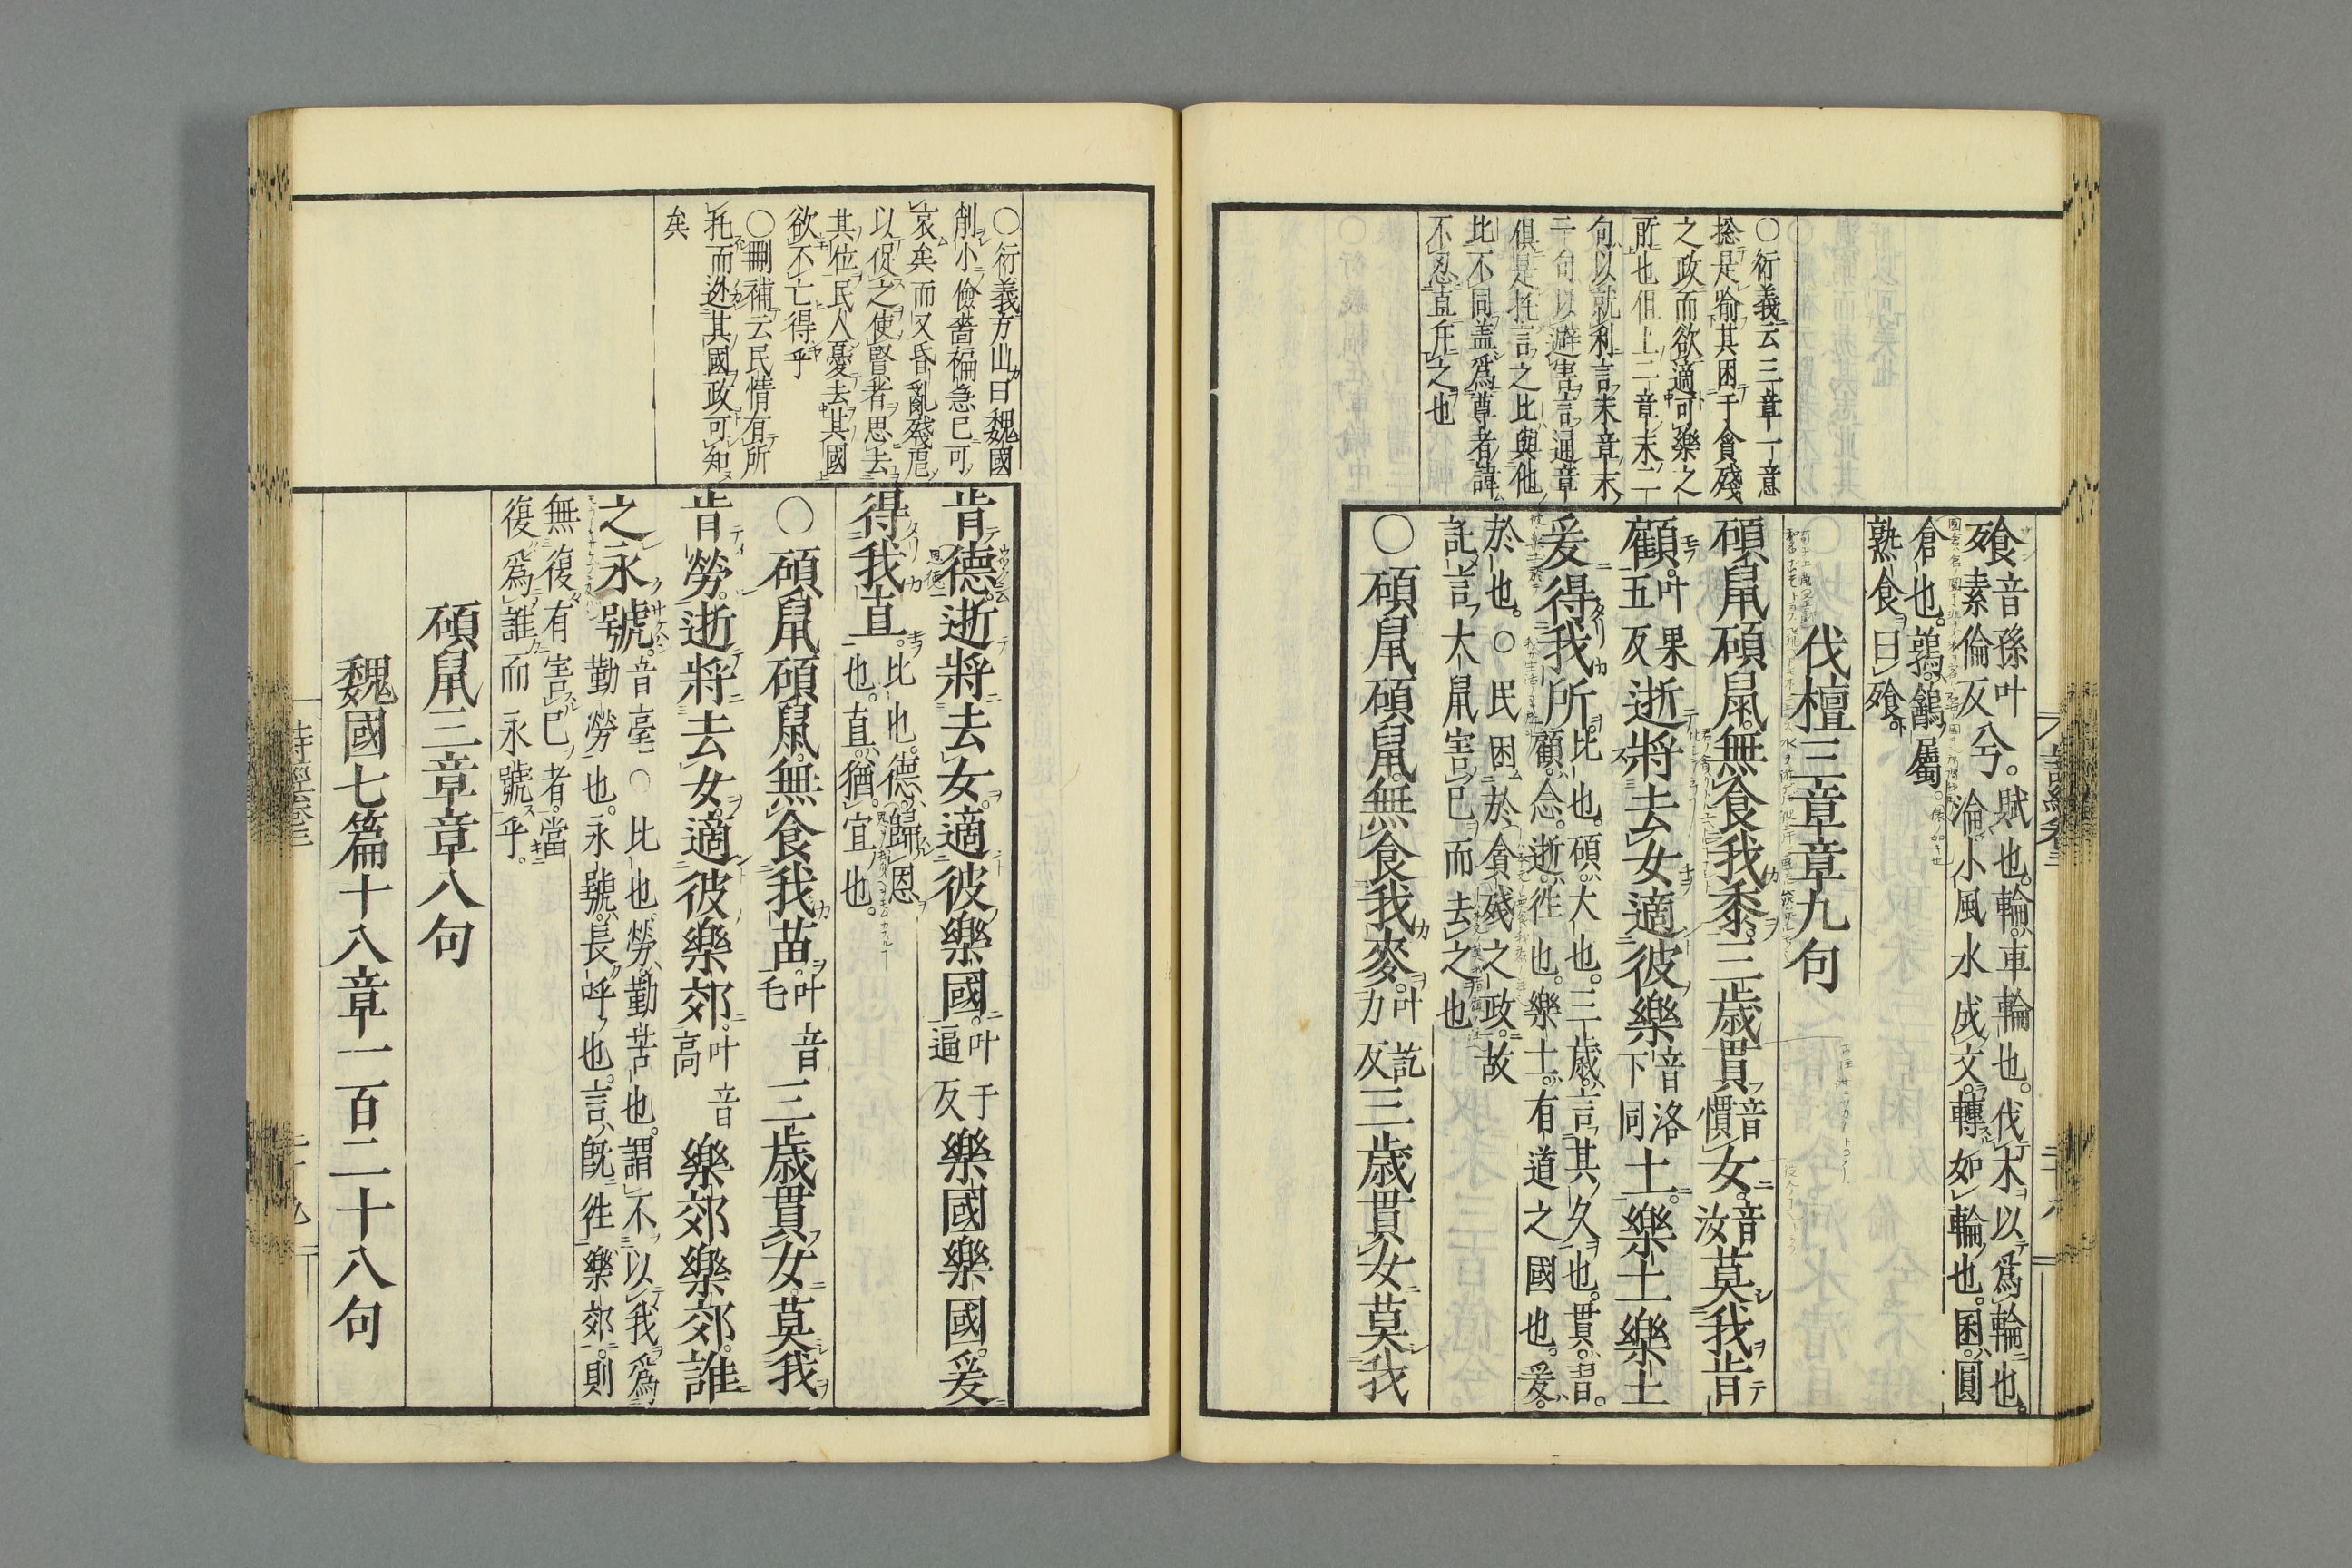 飧音孫叶
素倫反兮。賦也。輪。車輪也。伐木以爲輪也。
淪。小風水成文。轉如輪也。囷。圓
倉也。鶉。䳺屬。
熟食曰飧。
伐檀三章章九句
碩鼠碩鼠。無食我黍。三歲貫音慣女。音汝莫我肯
顧。叶果五反逝將去女。適彼樂音洛下同土。樂土樂土
爰得我所。比也。碩。大也。三歲。言其久也。貫。習。
顧。念。逝。徃也。樂土。有道之國也。爰。
於也。○民困於貪殘之政。故
託言大鼠害己而去之也
○碩鼠碩鼠。無食我麥。叶訖力反三歲貫女。莫我
○衍義云三章一意
捴是喻其困于貪殘
之政而欲適可樂之
所也但上二章末二
句以就利言末章末
二句以避害言通章
俱是托言之比與他
比不同盖爲尊者諱
不忍直斥之也
詩經卷三
二十八
肯德。逝將去女。適彼樂國。叶于逼反樂國樂國。爰
得我直。比也。德。歸恩
也。直。猶宜也。
○碩鼠碩鼠。無食我苗。叶音毛三歲貫女。莫我
肯勞。逝將去女。適彼樂郊。叶音高樂郊樂郊。誰
之永號。音毫○比也。勞。勤苦也。謂不以我爲
勤勞也。永號。長呼也。言既徃樂郊。則
無復有害己者。當
復爲誰而永號乎。
碩鼠三章章八句
魏國七篇十八章一百二十八句
○衍義方山曰魏國
削小儉嗇褊急已可
哀矣而又昏亂殘虐
以促之使賢者思去
其位民人憂去其國
欲不亡得乎
○刪補云民情有所
托而迯其國政可知
矣
詩經卷三
二十九